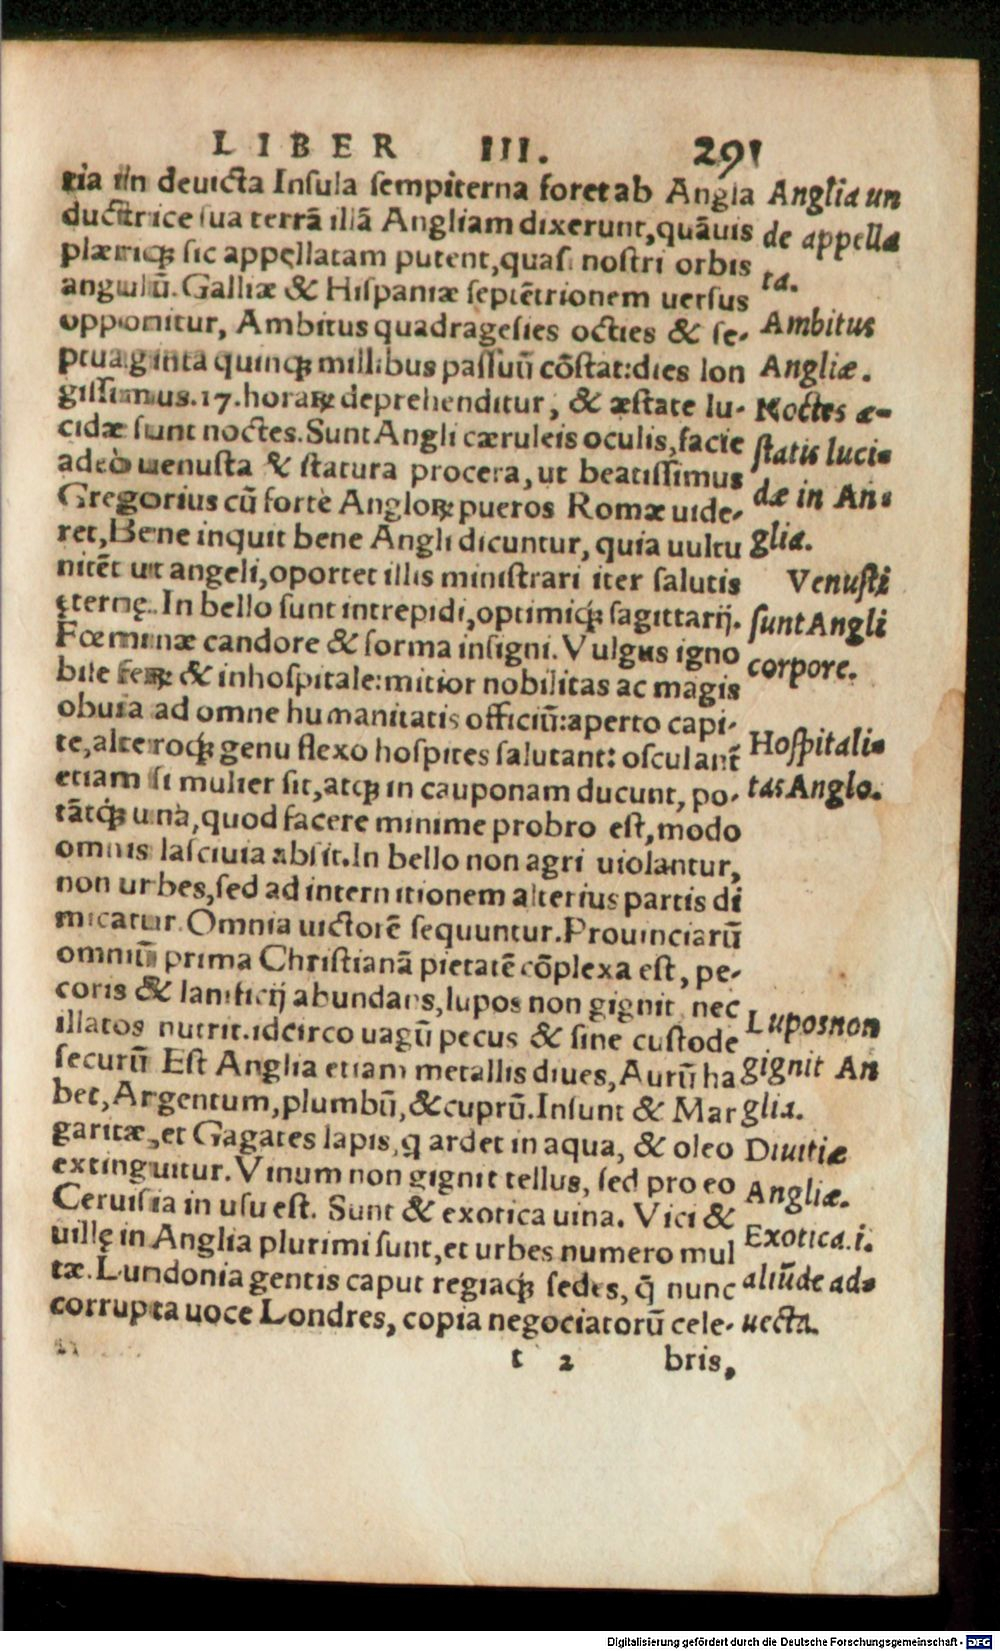 LIBER III. 291
ria in deuicta Insula sempiterna foret ab Angla
ductrice sua terrã illã Angliam dixerunt, quãuis
plæriqꝫ sic appellatam putent, quasi nostri orbis
angulũ. Galliæ & Hispaniæ septẽtrionem uersus
opponitur, Ambitus quadragesies octies & se-
ptuaginta quinqꝫ millibus passuũ cõstat: dies lon
gissimus. 17. horaꝝ deprehenditur, & æstate lu-
cidæ sunt noctes. Sunt Angli cæruleis oculis, facie
adeò uenusta & statura procera, ut beatissimus
Gregorius cũ fortè Angloꝝ pueros Romæ uide-
ret, Bene inquit bene Angli dicuntur, quia uultu
nitẽt ut angeli, oportet illis ministrari iter salutis
ęternę. In bello sunt intrepidi, optimiqꝫ sagittarij.
Fœminæ candore & forma insigni. Vulgus igno
bile feꝝ & inhospitale: mitior nobilitas ac magis
obuia ad omne humanitatis officiũ: aperto capi-
te, alteroqꝫ genu flexo hospites salutant: osculant̃
etiam si mulier sit, atqꝫ in cauponam ducunt, po-
tãtqꝫ unà, quod facere minime probro est, modo
omnis lasciuia absit. In bello non agri uiolantur,
non urbes, sed ad internitionem alterius partis di
micatur. Omnia uictorẽ sequuntur. Prouinciarũ
omniũ prima Christianã pietatẽ cõplexa est, pe-
coris & lanificij abundans, lupos non gignit nec
illatos nutrit. idcirco uagũ pecus & sine custode
securũ Est Anglia etiam metallis diues, Aurũ ha
bet, Argentum, plumbũ, & cuprũ. Insunt & Mar
garitæ, et Gagates lapis, q̃ ardet in aqua, & oleo
extinguitur. Vinum non gignit tellus, sed pro eo
Ceruisia in usu est. Sunt & exotica uina. Vici &
uillę in Anglia plurimi sunt, et urbes numero mul
tæ. Lundonia gentis caput regiaqꝫ sedes, q̃ nunc
corrupta uoce Londres, copia negociatorũ cele-
t 2 bris,
Anglia un
de appella
ta.
Ambitus
Angliæ.
Noctes æ-
statis luci-
dæ in An-
glia.
Venusti
sunt Angli
corpore.
Hospitali-
tas Anglo.
Lupos non
gignit An
glia.
Diuitiæ
Angliæ.
Exotica. i.
aliũde ad-
uecta.
Digitalisierung gefördert durch die Deutsche Forschungsgemeinschaft - DFG